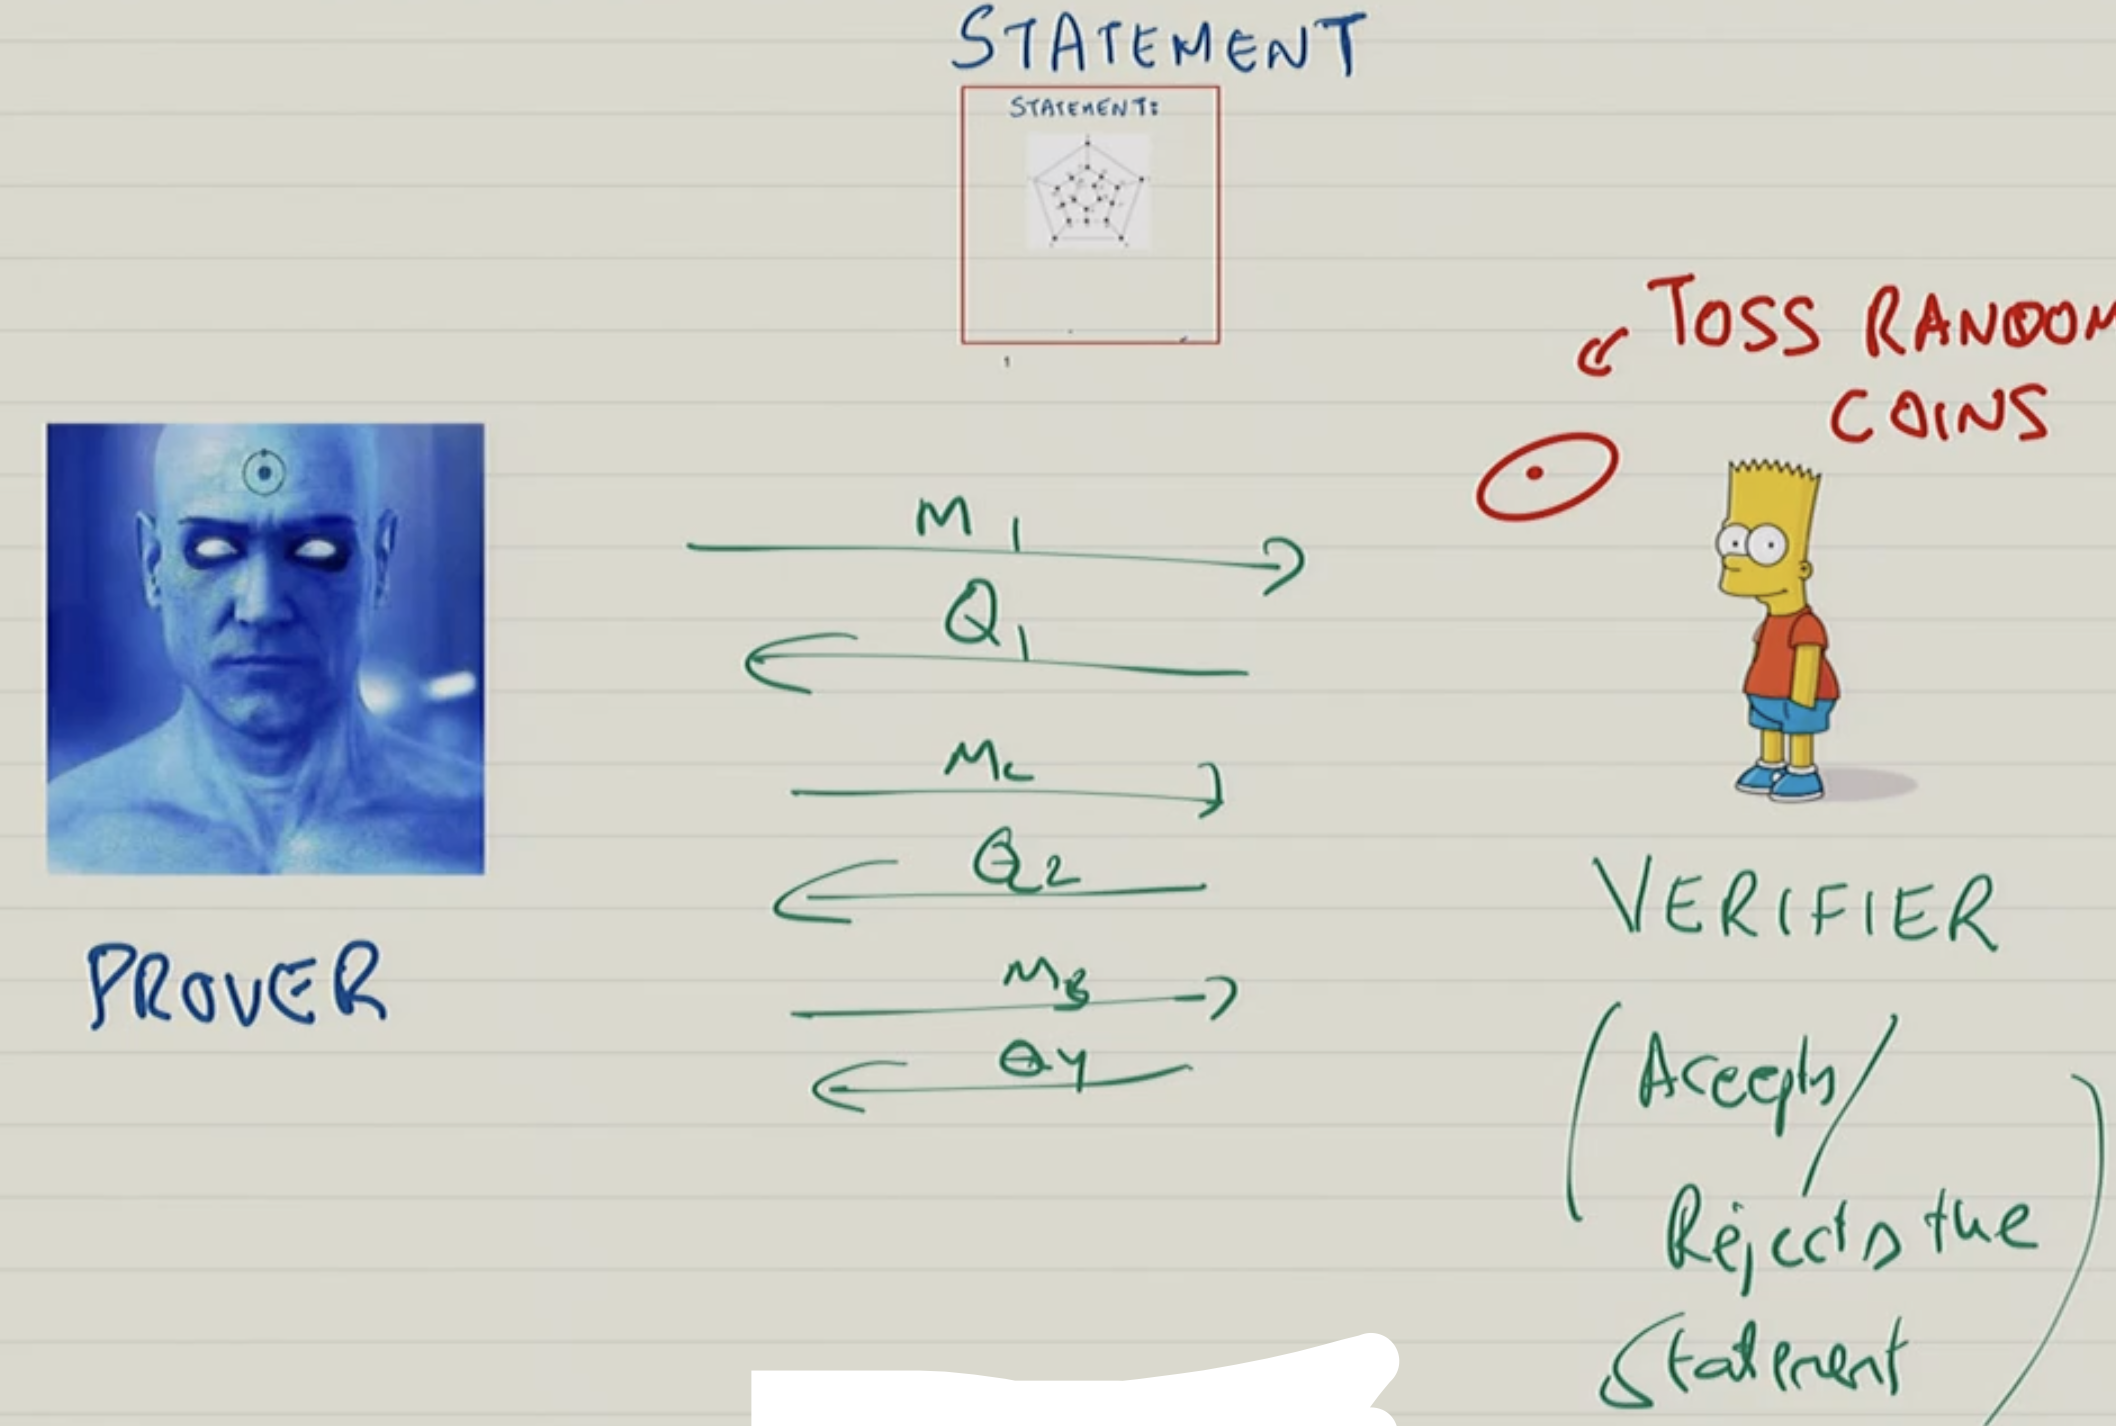 STATEMENT
STATEMENT:
TOSS RANDOM
COINS
M1
Q1
M2
Q2
M3
Q4
PROVER
VERIFIER
(Accepts/
Rejects the
Statement